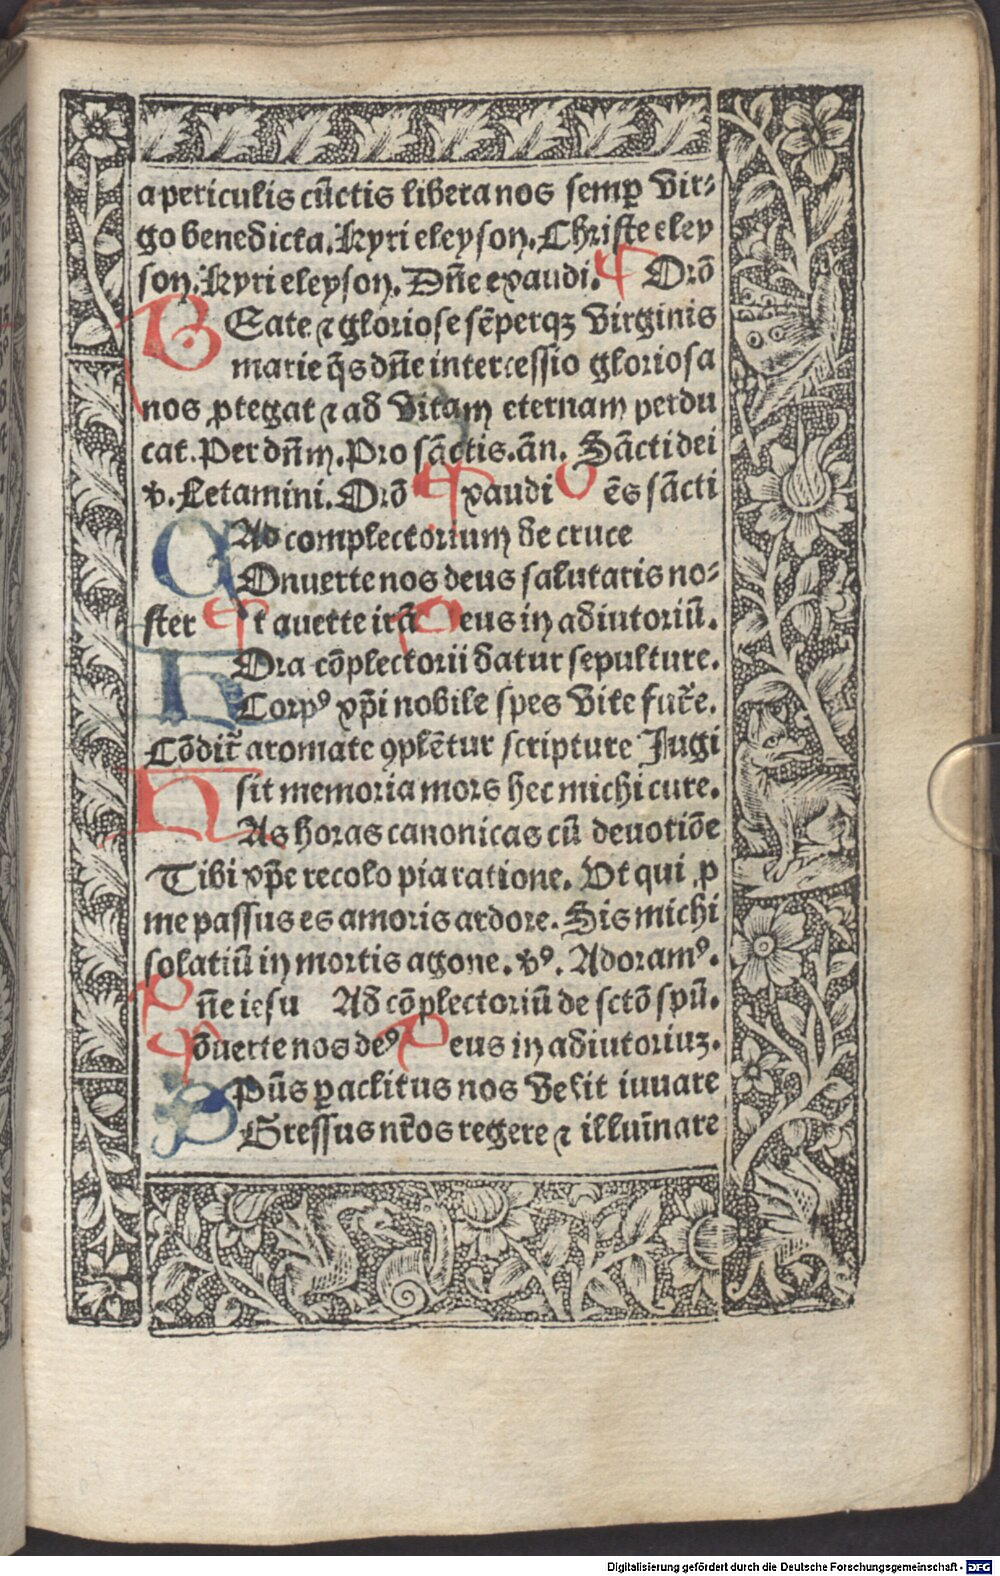 a periculis cūctis libera nos semꝑ Vir⸗
go benedicta. Kyri eleyson. Christe eley
son. Kyri eleyson. Dn̄e exaudi. E Orō
BEate ⁊ gloriose sēperqꝫ Virginis
marie q̄s dn̄e intercessio gloriosa
nos ꝓtegat ⁊ ad Vitam eternam perdu
cat. Per dn̄m. Pro sāctis. ān. Sācti dei
v. Letamini. Orō Exaudi O ēs sācti
Ad complectorium de cruce
COnuerte nos deus salutaris no⸗
ster Et auerte irā Deus in adiutoriū.
HOra cōplectorii datur sepulture.
Corpꝰ xp̄i nobile spes Vite fut̄re.
Cōdit̄ aromate ꝯplētur scripture Jugi
sit memoria mors hec michi cure.
HAs horas canonicas cū deuotiōe
Tibi xp̄e recolo pia ratione. Vt qui ꝓ
me passus es amoris ardore. Sis michi
solatiū in mortis agone. vꝰ. Adoramꝰ.
Dn̄e iesu Ad cōplectoriū de sctō spū.
Cōuerte nos deꝰ Deus in adiutoriuꝫ.
SPūs ꝑaclitus nos Velit iuuare
Gressus nr̄os regere ⁊ illuīnare
Digitalisierung gefördert durch die Deutsche Forschungsgemeinschaft - DFG